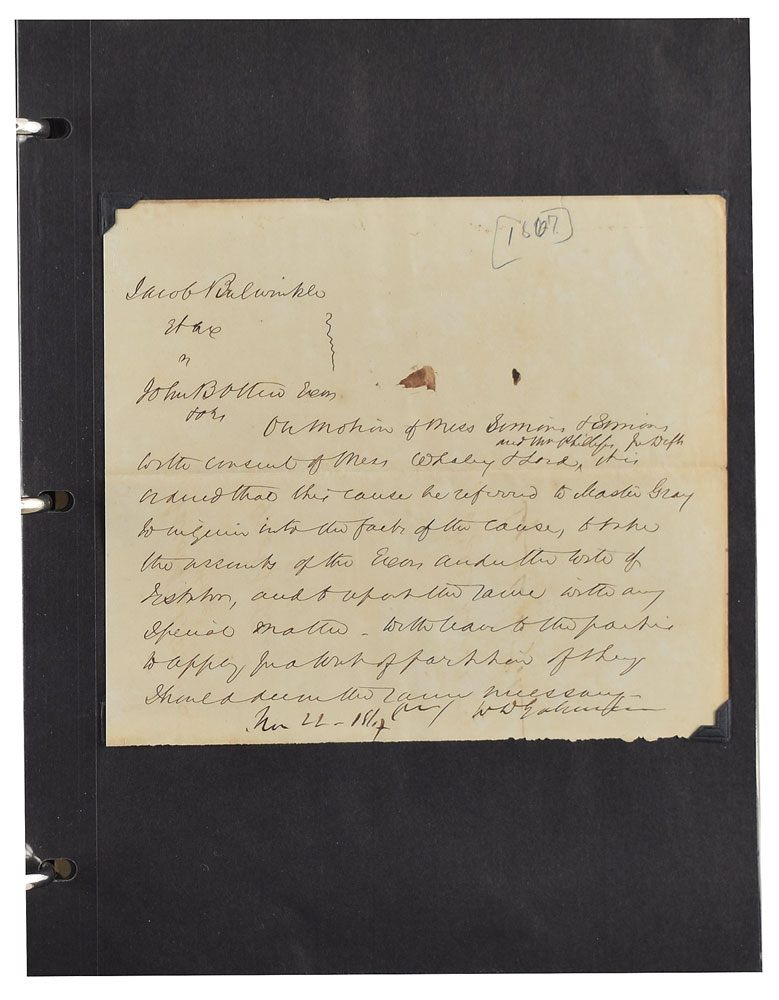 1867
Jacob Bulwinkle
Et ux
vs
John B Otten Exor
& ors
On Motion of Mess Simons & Simons
and Mr Phillips for Defts
with consent of Mess Whaley & Lord, it is
ordered that this cause be referred to Master Gray
to inquire into the facts of the cause, to take
the accounts of the Exors under the Will of
Testator, and to report the same with any
Special Matter - with leave to the parties
to apply for a Writ of partition if they
should deem the same necessary -
Nov 22 - 1867 W D Johnson